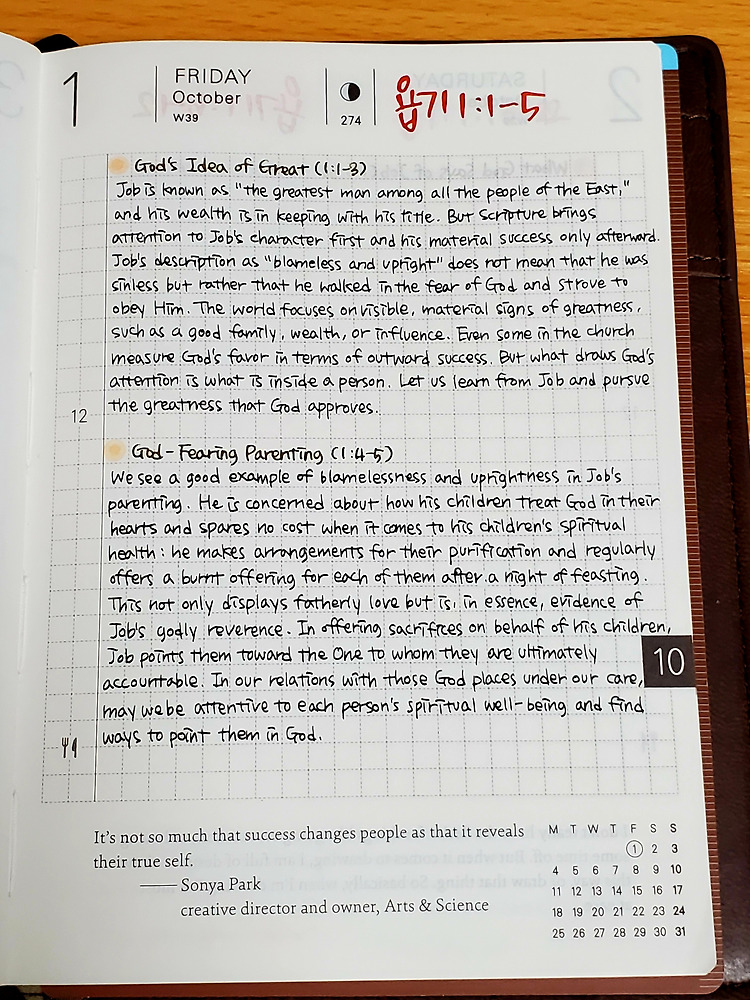 1
FRIDAY
October
W39
274
욥기 1:1-5
God's Idea of Great (1:1-3)
Job is known as "the greatest man among all the people of the East,"
and his wealth is in keeping with his title. But Scripture brings
attention to Job's character first and his material success only afterward.
Job's description as "blameless and upright" does not mean that he was
sinless but rather that he walked in the fear of God and strove to
obey Him. The world focuses on visible, material signs of greatness,
such as a good family, wealth, or influence. Even some in the church
measure God's favor in terms of outward success. But what draws God's
attention is what is inside a person. Let us learn from Job and pursue
the greatness that God approves.
12
God-Fearing Parenting (1:4-5)
We see a good example of blamelessness and uprightness in Job's
parenting. He is concerned about how his children treat God in their
hearts and spares no cost when it comes to his children's spiritual
health: he makes arrangements for their purification and regularly
offers a burnt offering for each of them after a night of feasting.
This not only displays fatherly love but is, in essence, evidence of
Job's godly reverence. In offering sacrifices on behalf of his children,
Job points them toward the One to whom they are ultimately
10
accountable. In our relations with those God places under our care,
may we be attentive to each person's spiritual well-being and find
ways to point them in God.
It's not so much that success changes people as that it reveals
their true self.
Sonya Park
creative director and owner, Arts & Science
M T W T F S S
1 2 3
4 5 6 7 8 9 10
11 12 13 14 15 16 17
18 19 20 21 22 23 24
25 26 27 28 29 30 31